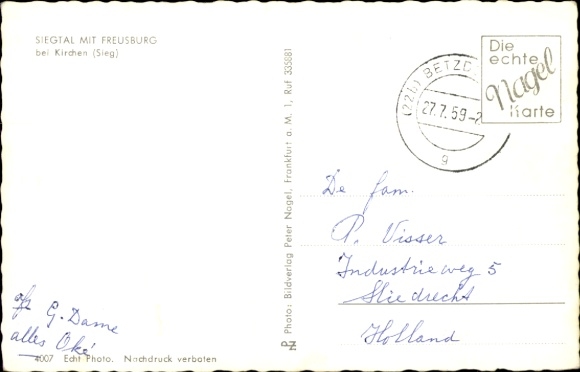 SIEGTAL MIT FREUSBURG
bei Kirchen (Sieg)
G. Dame
alles Oké
4007 Echt Photo. Nachdruck verboten
Photo: Bildverlag Peter Nagel, Frankfurt a. M. 1, Ruf 335881
(22b) BETZD
27.7.59-2
g
Die
echte
Nagel
Karte
De fam.
P. Visser
Industrieweg 5
Sliedrecht
Holland